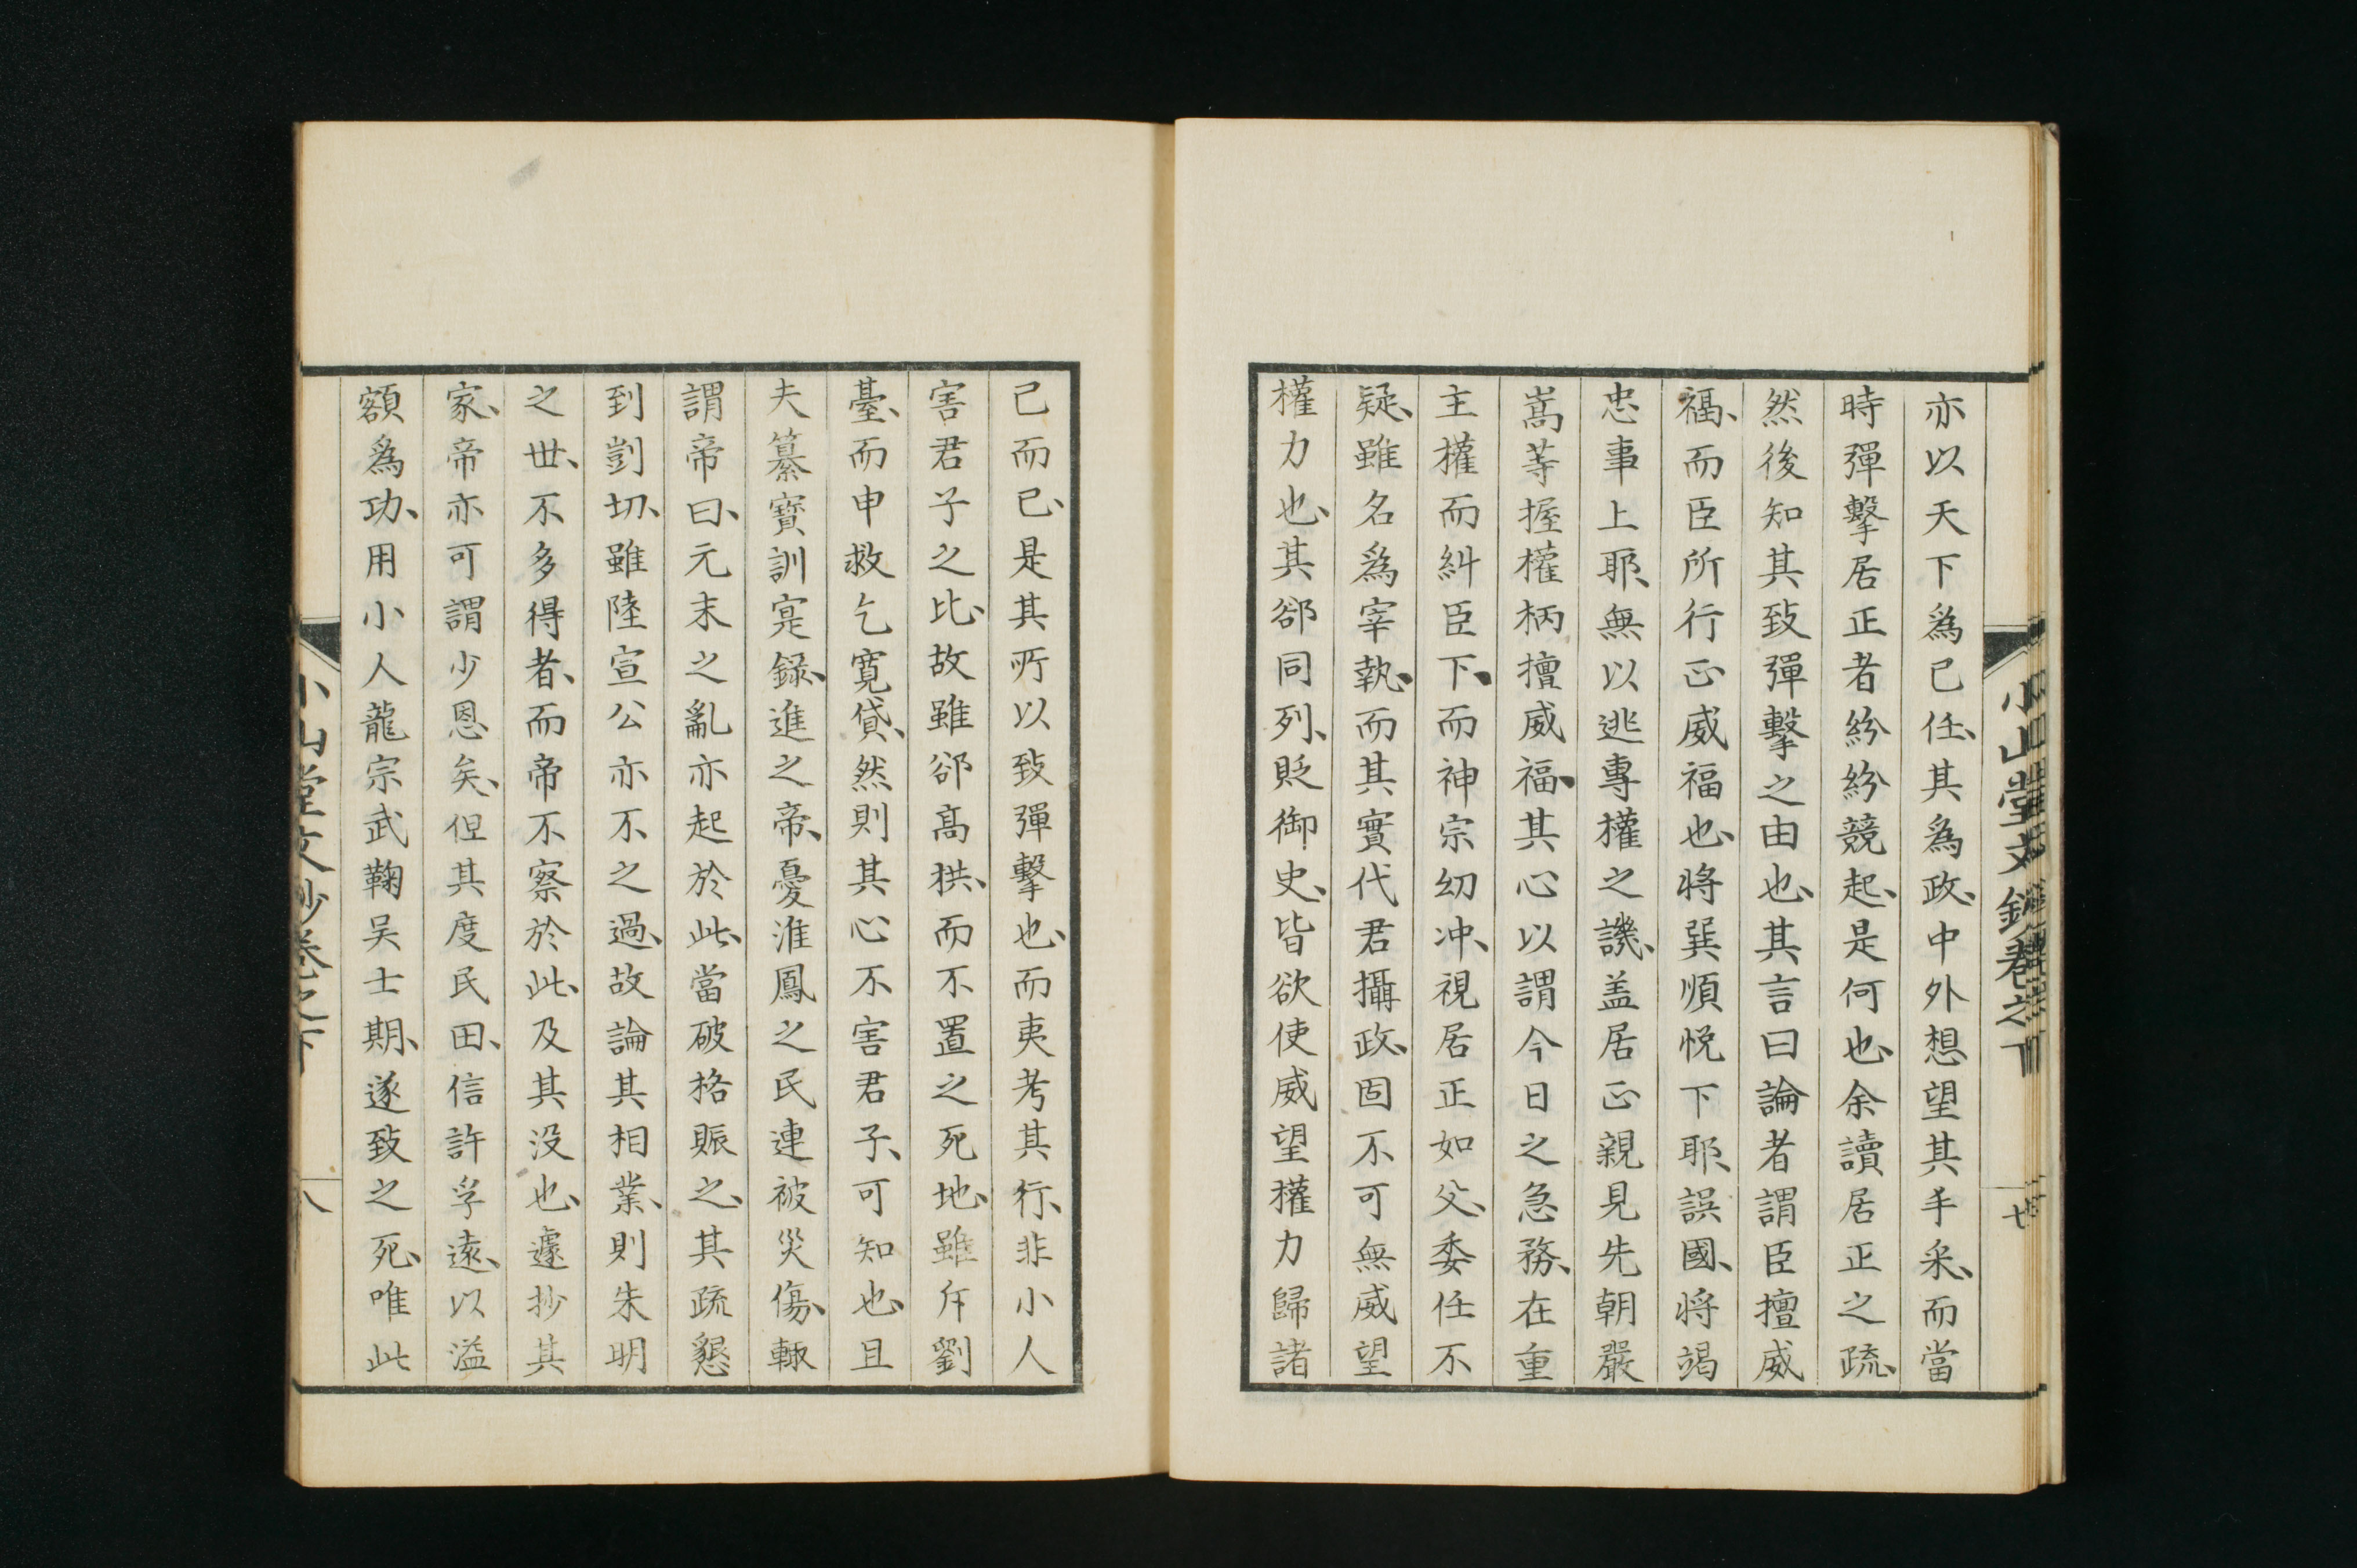 小山堂文鈔卷之下
七
亦以天下爲己任、其爲政、中外想望其手采、而當
時彈擊居正者紛紛競起、是何也、余讀居正之疏、
然後知其致彈擊之由也、其言曰論者謂臣擅威
福、而臣所行正威福也、將巽順悅下耶、誤國、將竭
忠事上耶、無以逃專權之譏、盖居正親見先朝嚴
嵩等握權柄擅威福、其心以謂今日之急務、在重
主權而糾臣下、而神宗幼冲、視居正如父、委任不
疑、雖名爲宰執、而其實代君攝政、固不可無威望
權力也、其郤同列、貶御史、皆欲使威望權力歸諸
己而已、是其所以致彈擊也、而夷考其行、非小人
害君子之比、故雖郤高拱、而不置之死地、雖斥劉
臺、而申救乞寬貸、然則其心不害君子、可知也、且
夫纂寶訓寔錄、進之帝、憂淮鳳之民連被災傷、輙
謂帝曰、元末之亂亦起於此、當破格賑之、其疏懇
到剴切、雖陸宣公亦不之過、故論其相業、則朱明
之世、不多得者、而帝不察於此、及其沒也、遽抄其
家、帝亦可謂少恩矣、但其度民田、信許孚遠、以溢
額爲功、用小人龍宗武鞠吳士期、遂致之死、唯此
小山堂文鈔卷之下
八